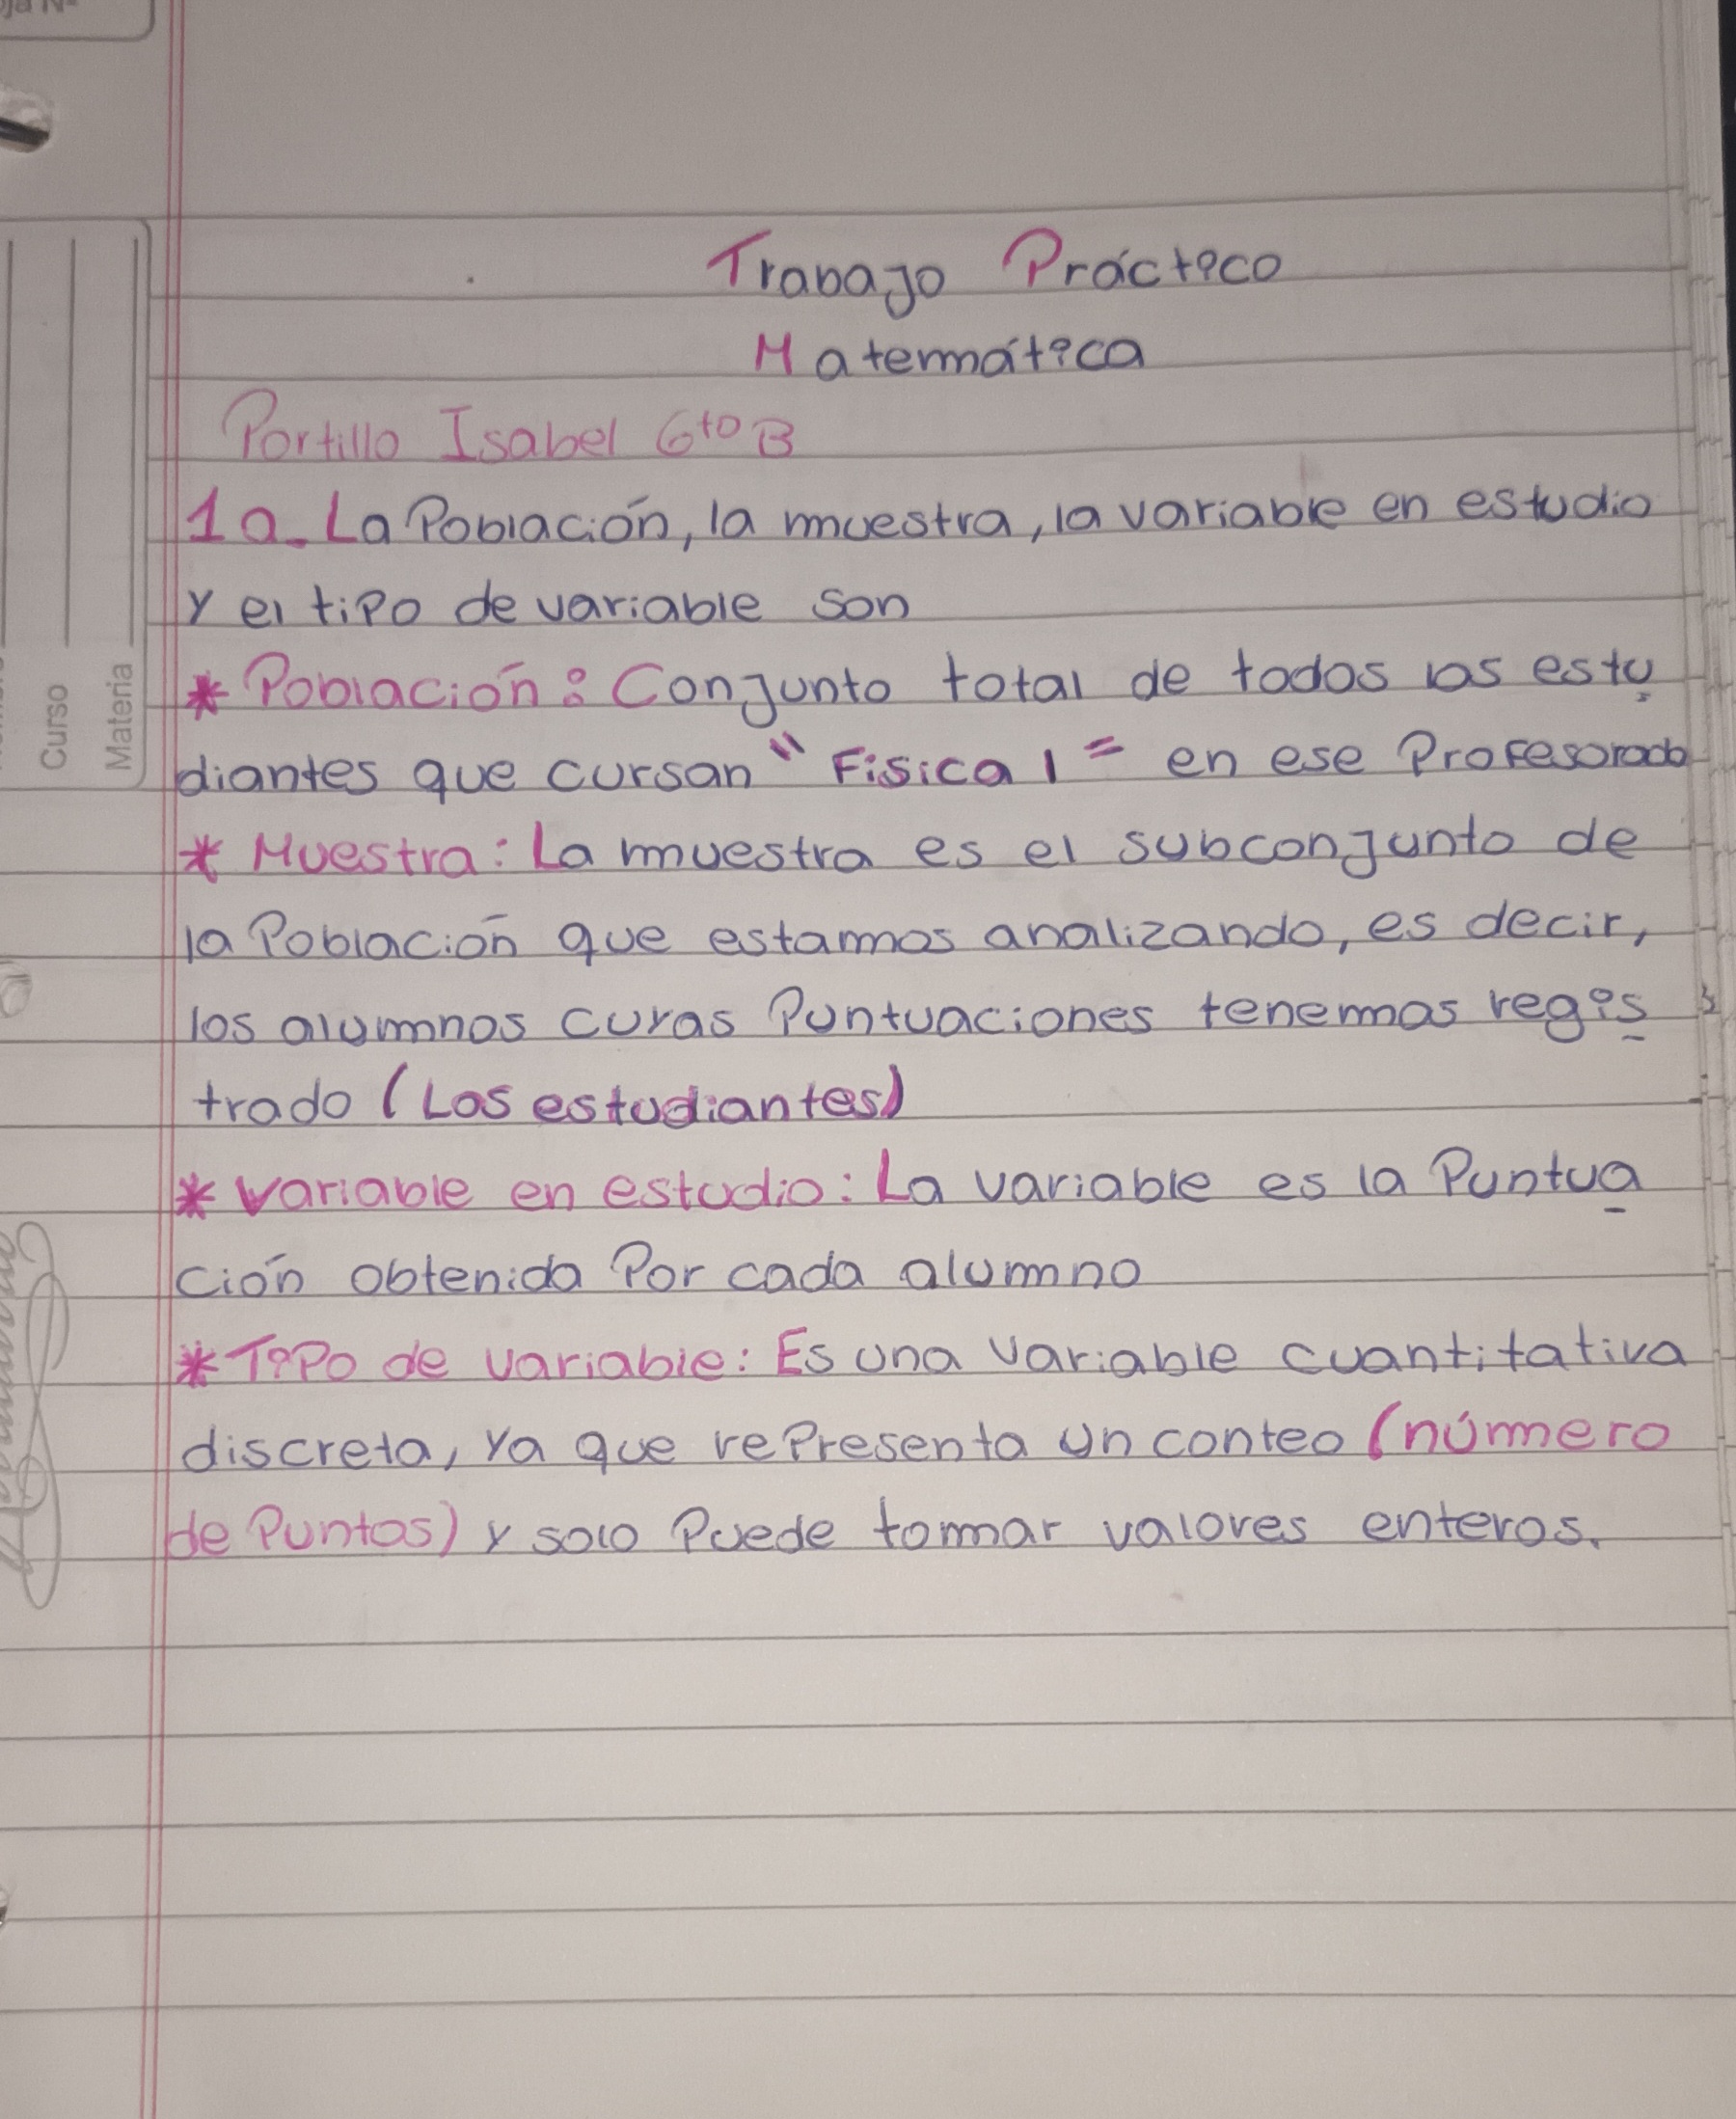 Trabajo Práctico
Matemática
Portillo Isabel 6to B
1a. La Población, la muestra, la variable en estudio
y el tipo de variable son
* Población: Conjunto total de todos los estu
diantes que cursan "Fisica 1" en ese Profesorado
* Muestra: La muestra es el subconjunto de
la Población que estamos analizando, es decir,
los alumnos cuyas Puntuaciones tenemos regis
trado (Los estudiantes)
* Variable en estudio: La variable es la Puntua
ción obtenida Por cada alumno
* Tipo de variable: Es una variable cuantitativa
discreta, ya que representa un conteo (número
de Puntos) y solo Puede tomar valores enteros.
Curso
Materia